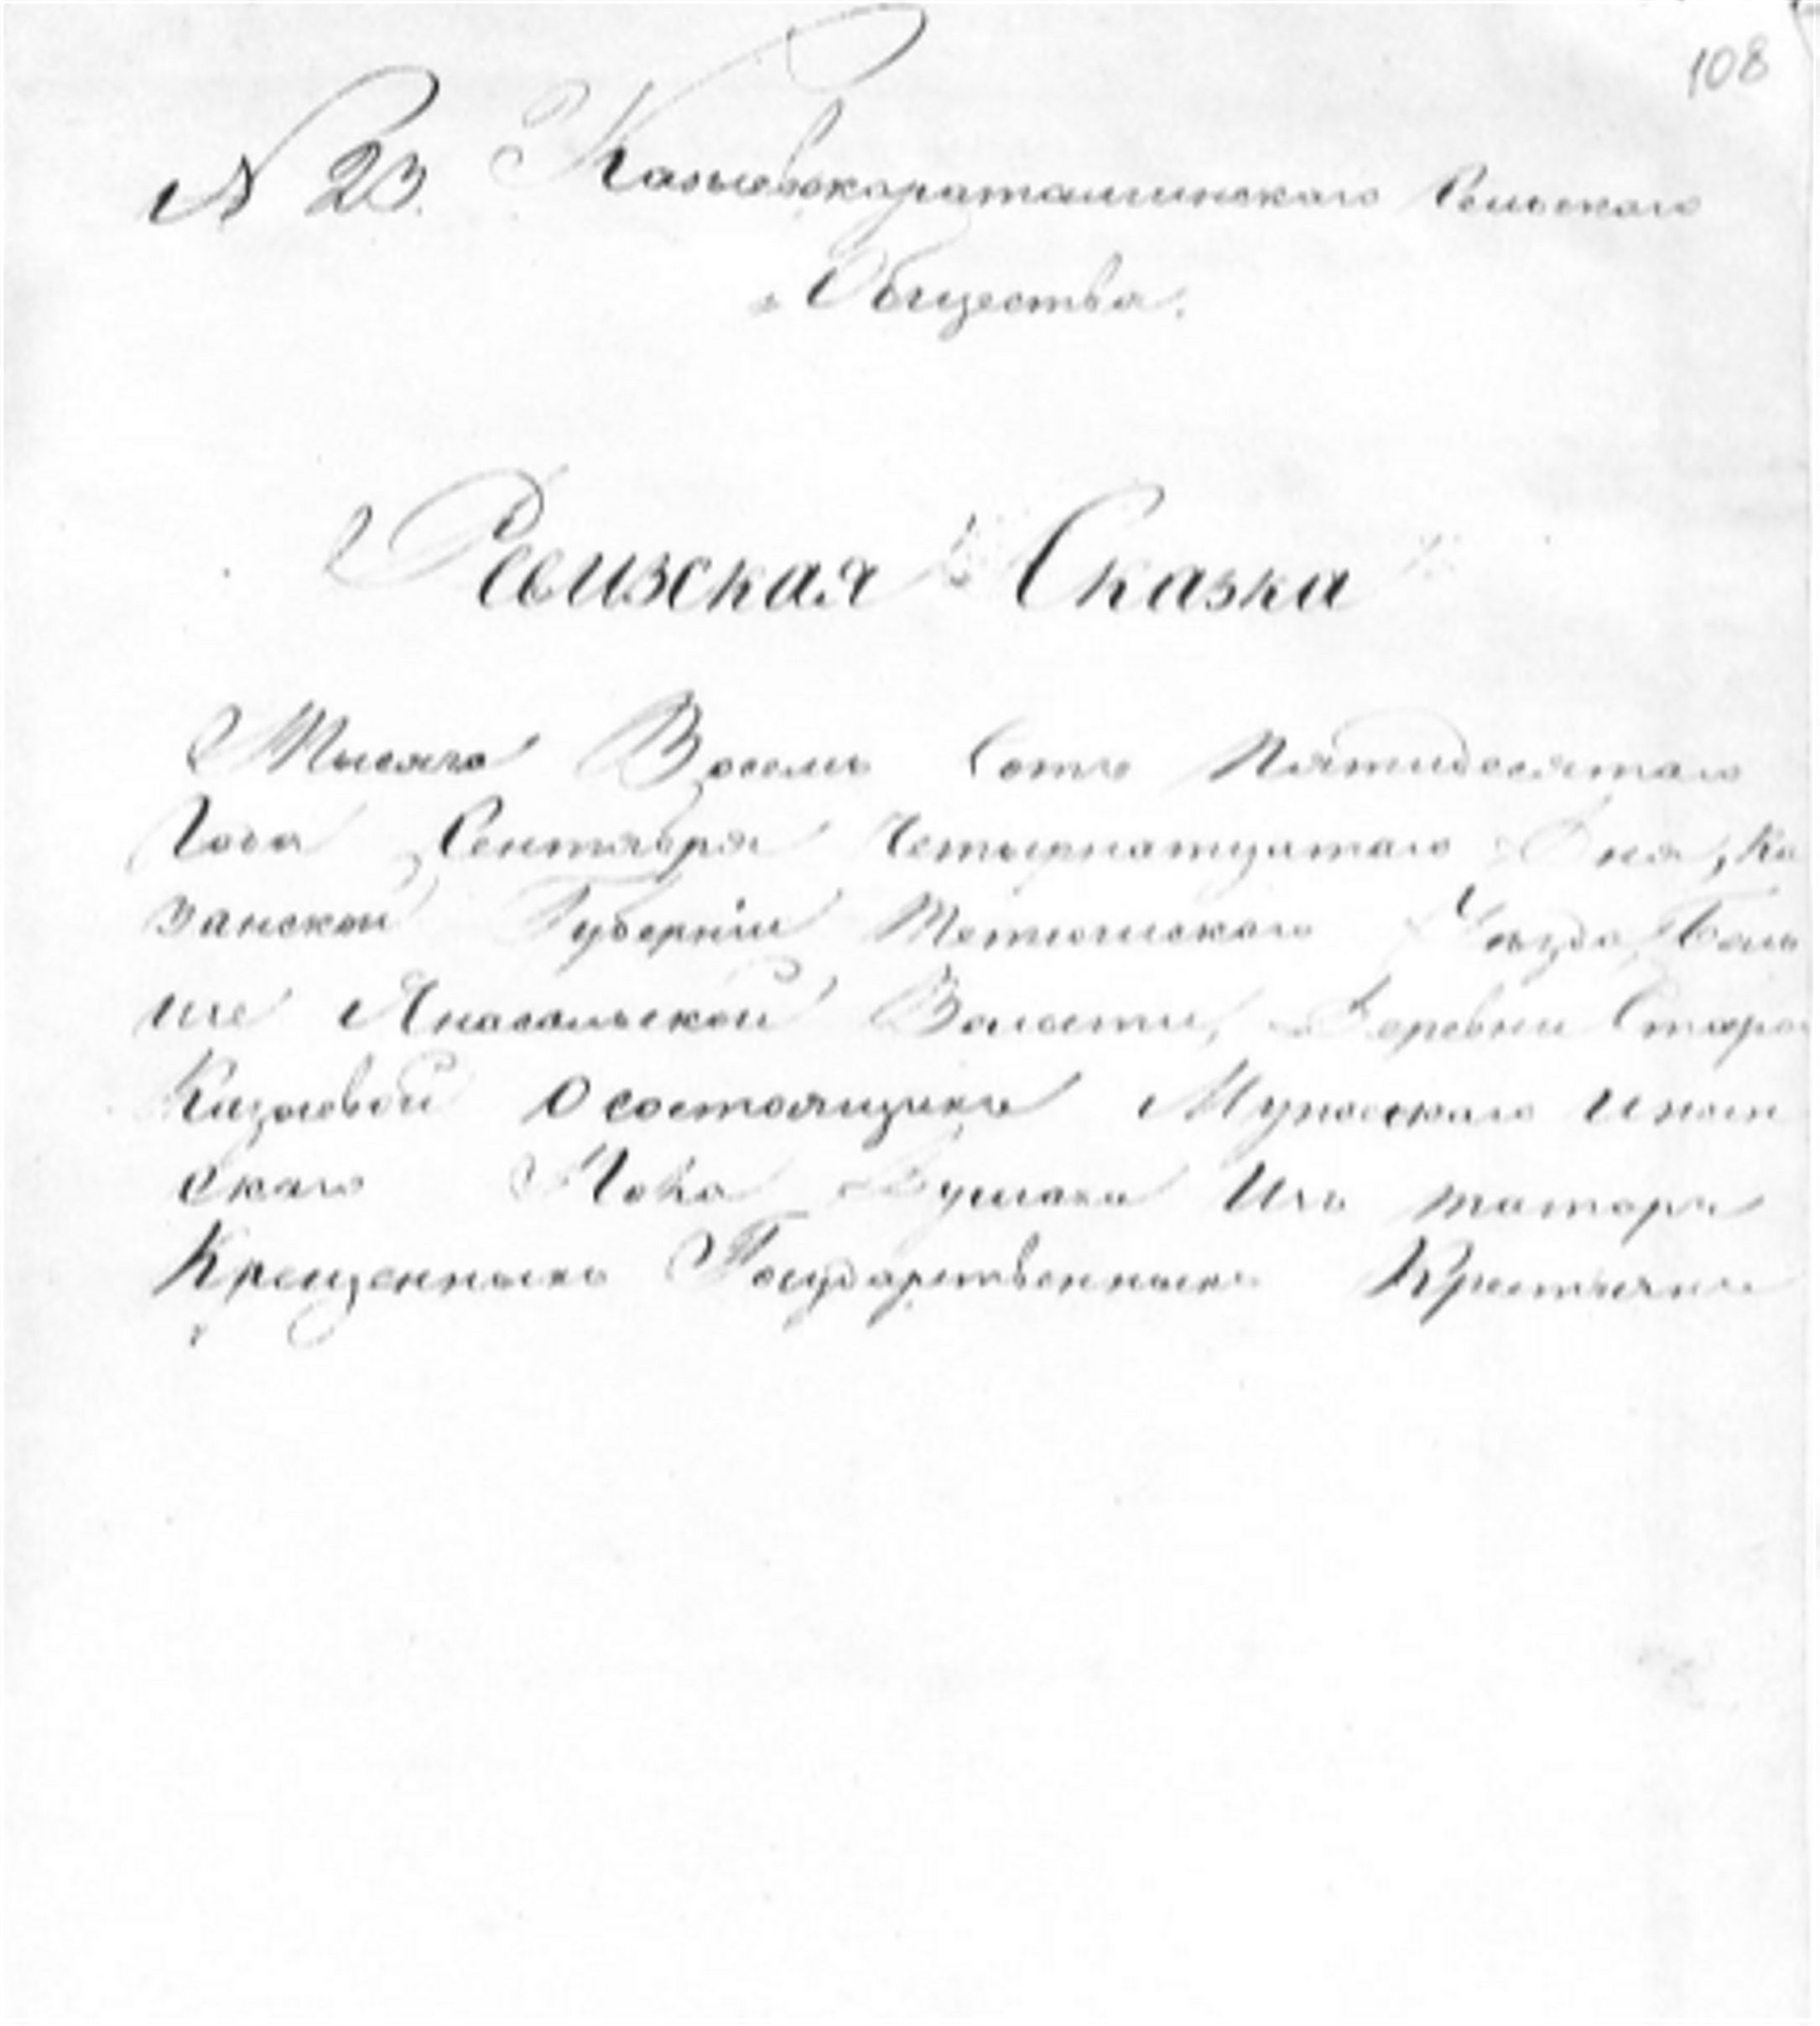 108
N 23. Казыевокараталинскаго Сельскаго
Общества.
Ревизская Сказка
Тысяча Восемь Сотъ Пятидесятаго
Года Сентября Четырнатцатаго Дня, Ка
занской Губерніи Тетюшскаго Уѣзда, Боль
ше Янасальской Волости, Деревни Старой
Казыевой О состоящихъ Мужескаго и жен
скаго Пола Душахъ Изъ татаръ
Крещенныхъ Государственныхъ Крестьянъ